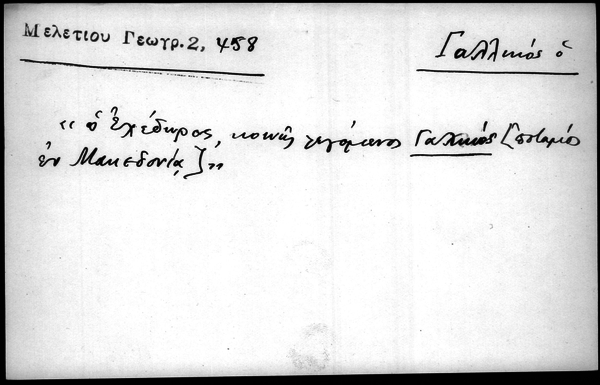 Μελετίου Γεωγρ. 2, 458
Γαλλικός ὁ
«ὁ Ἐχέδωρος, κοινῶς λεγόμενος Γαλικός [ποταμὸς
ἐν Μακεδονίᾳ]»